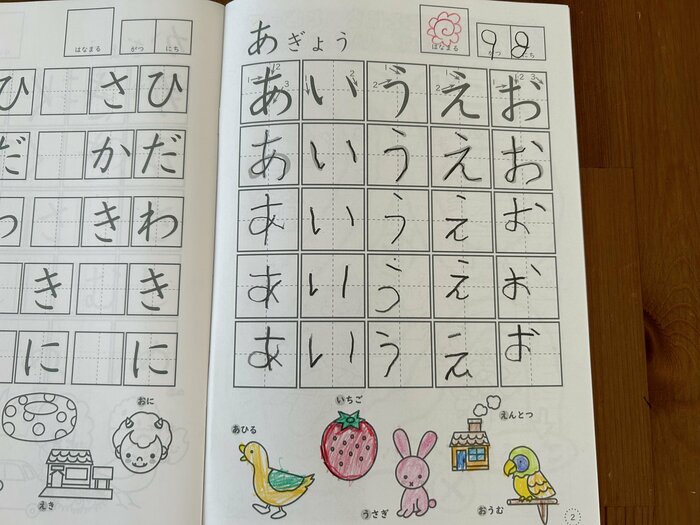 はなまる がつ にち
ひ さ ひ
だ か だ
き わ
き き
に に
おに
えき
あぎょう
はなまる がつ にち
9 8
あ い う え お
あ い う え お
あ い う え お
あ い う え お
あ い う え お
いちご
えんとつ
あひる
うさぎ
おうむ
2